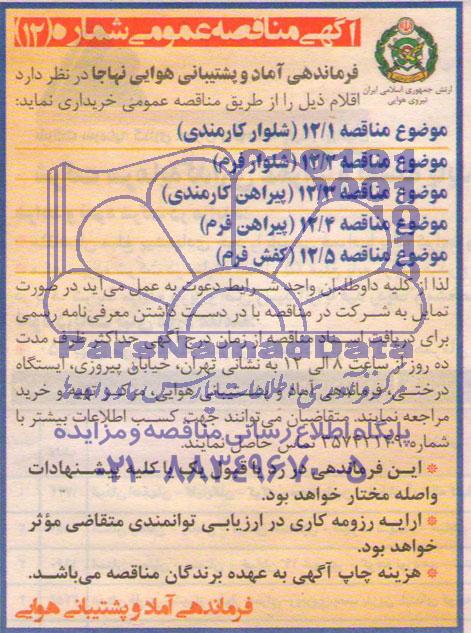 آگهی مناقصه عمومی شماره (۱۲)
ارتش جمهوری اسلامی ایران
نیروی هوایی
فرماندهی آماد و پشتیبانی هوایی نهاجا در نظر دارد
اقلام ذیل را از طریق مناقصه عمومی خریداری نماید:
موضوع مناقصه ۱۲/۱ (شلوار کارمندی)
موضوع مناقصه ۱۲/۲ (شلوار فرم)
موضوع مناقصه ۱۲/۳ (پیراهن کارمندی)
موضوع مناقصه ۱۲/۴ (پیراهن فرم)
موضوع مناقصه ۱۲/۵ (کفش فرم)
لذا از کلیه داوطلبان واجد شرایط دعوت به عمل می‌آید در صورت
تمایل به شرکت در مناقصه با در دست داشتن معرفی‌نامه رسمی
برای دریافت اسناد مناقصه از زمان درج آگهی حداکثر ظرف مدت
ده روز از ساعت ۸ الی ۱۲ به نشانی تهران، خیابان پیروزی، ایستگاه
درختی، فرماندهی آماد و پشتیبانی هوایی، مراکز تهیه و خرید
مراجعه نمایند. متقاضیان می‌توانند جهت کسب اطلاعات بیشتر با
شماره تماس حاصل نمایند.
* این فرماندهی در رد یا قبول یک یا کلیه پیشنهادات
واصله مختار خواهد بود.
* ارایه رزومه کاری در ارزیابی توانمندی متقاضی مؤثر
خواهد بود.
* هزینه چاپ آگهی به عهده برندگان مناقصه می‌باشد.
فرماندهی آماد و پشتیبانی هوایی
ParsNamadData
پایگاه اطلاع رسانی مناقصه و مزایده
۰۲۱-۸۸۳۴۹۶۷۰-۵